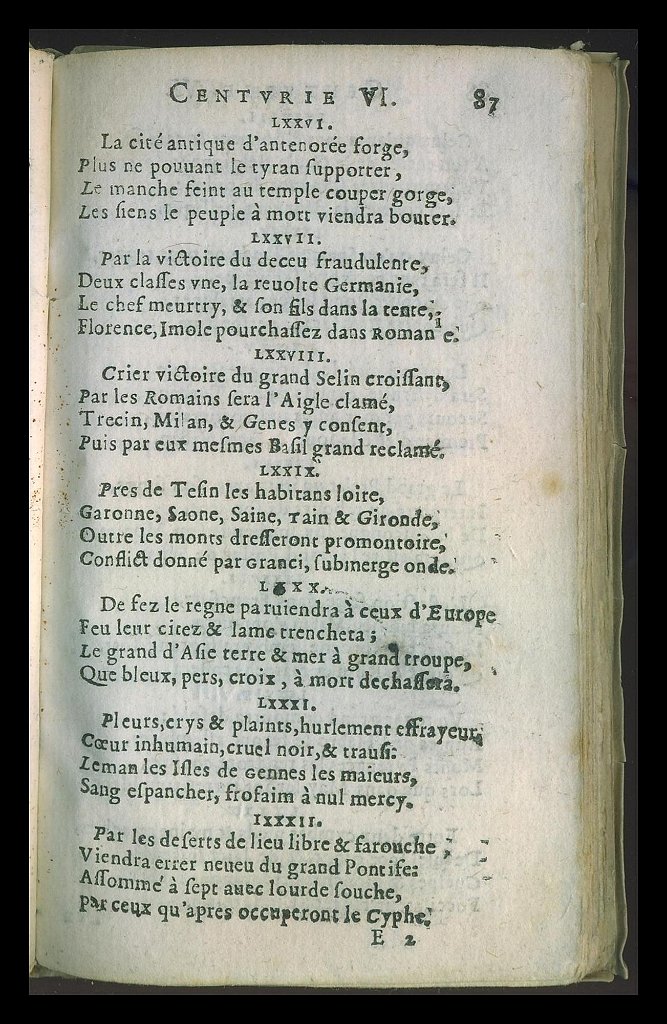 CENTVRIE VI. 87
LXXVI.
La cité antique d'antenorée forge,
Plus ne pouuant le tyran ſupporter,
Le manche feint au temple couper gorge,
Les ſiens le peuple à mort viendra bouter.
LXXVII.
Par la victoire du deceu fraudulente,
Deux claſſes vne, la reuolte Germanie,
Le chef meurtry, & ſon fils dans la tente,
Florence, Imole pourchaſſez dans Romanie.
LXXVIII.
Crier victoire du grand Selin croiſſant,
Par les Romains ſera l'Aigle clamé,
Trecin, Milan, & Genes y conſent,
Puis par eux meſmes Baſil grand reclamé.
LXXIX.
Pres de Teſin les habitans loire,
Garonne, Saone, Saine, Tain & Gironde,
Outre les monts dreſſeront promontoire,
Conflict donné par Granci, ſubmerge onde.
LXXX.
De fez le regne paruiendra à ceux d'Europe
Feu leur citez & lame trenchera ;
Le grand d'Aſie terre & mer à grand troupe,
Que bleux, pers, croix, à mort dechaſſera.
LXXXI.
Pleurs, crys & plaints, hurlement effrayeur,
Cœur inhumain, cruel noir, & tranſi:
Leman les Iſles de Gennes les maieurs,
Sang eſpancher, frofaim à nul mercy.
LXXXII.
Par les deſerts de lieu libre & farouche,
Viendra errer neueu du grand Pontife:
Aſſommé à ſept auec lourde ſouche,
Par ceux qu'apres occuperont le Cyphe.
E 2